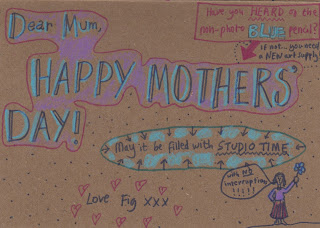 Dear Mum,
HAPPY MOTHERS'
DAY!
Have you HEARD of the
non-photo BLUE pencil?
if not... you need
a NEW art supply
May it be filled with STUDIO TIME
with NO
interrupting
!!!!!
Love Fig xxx